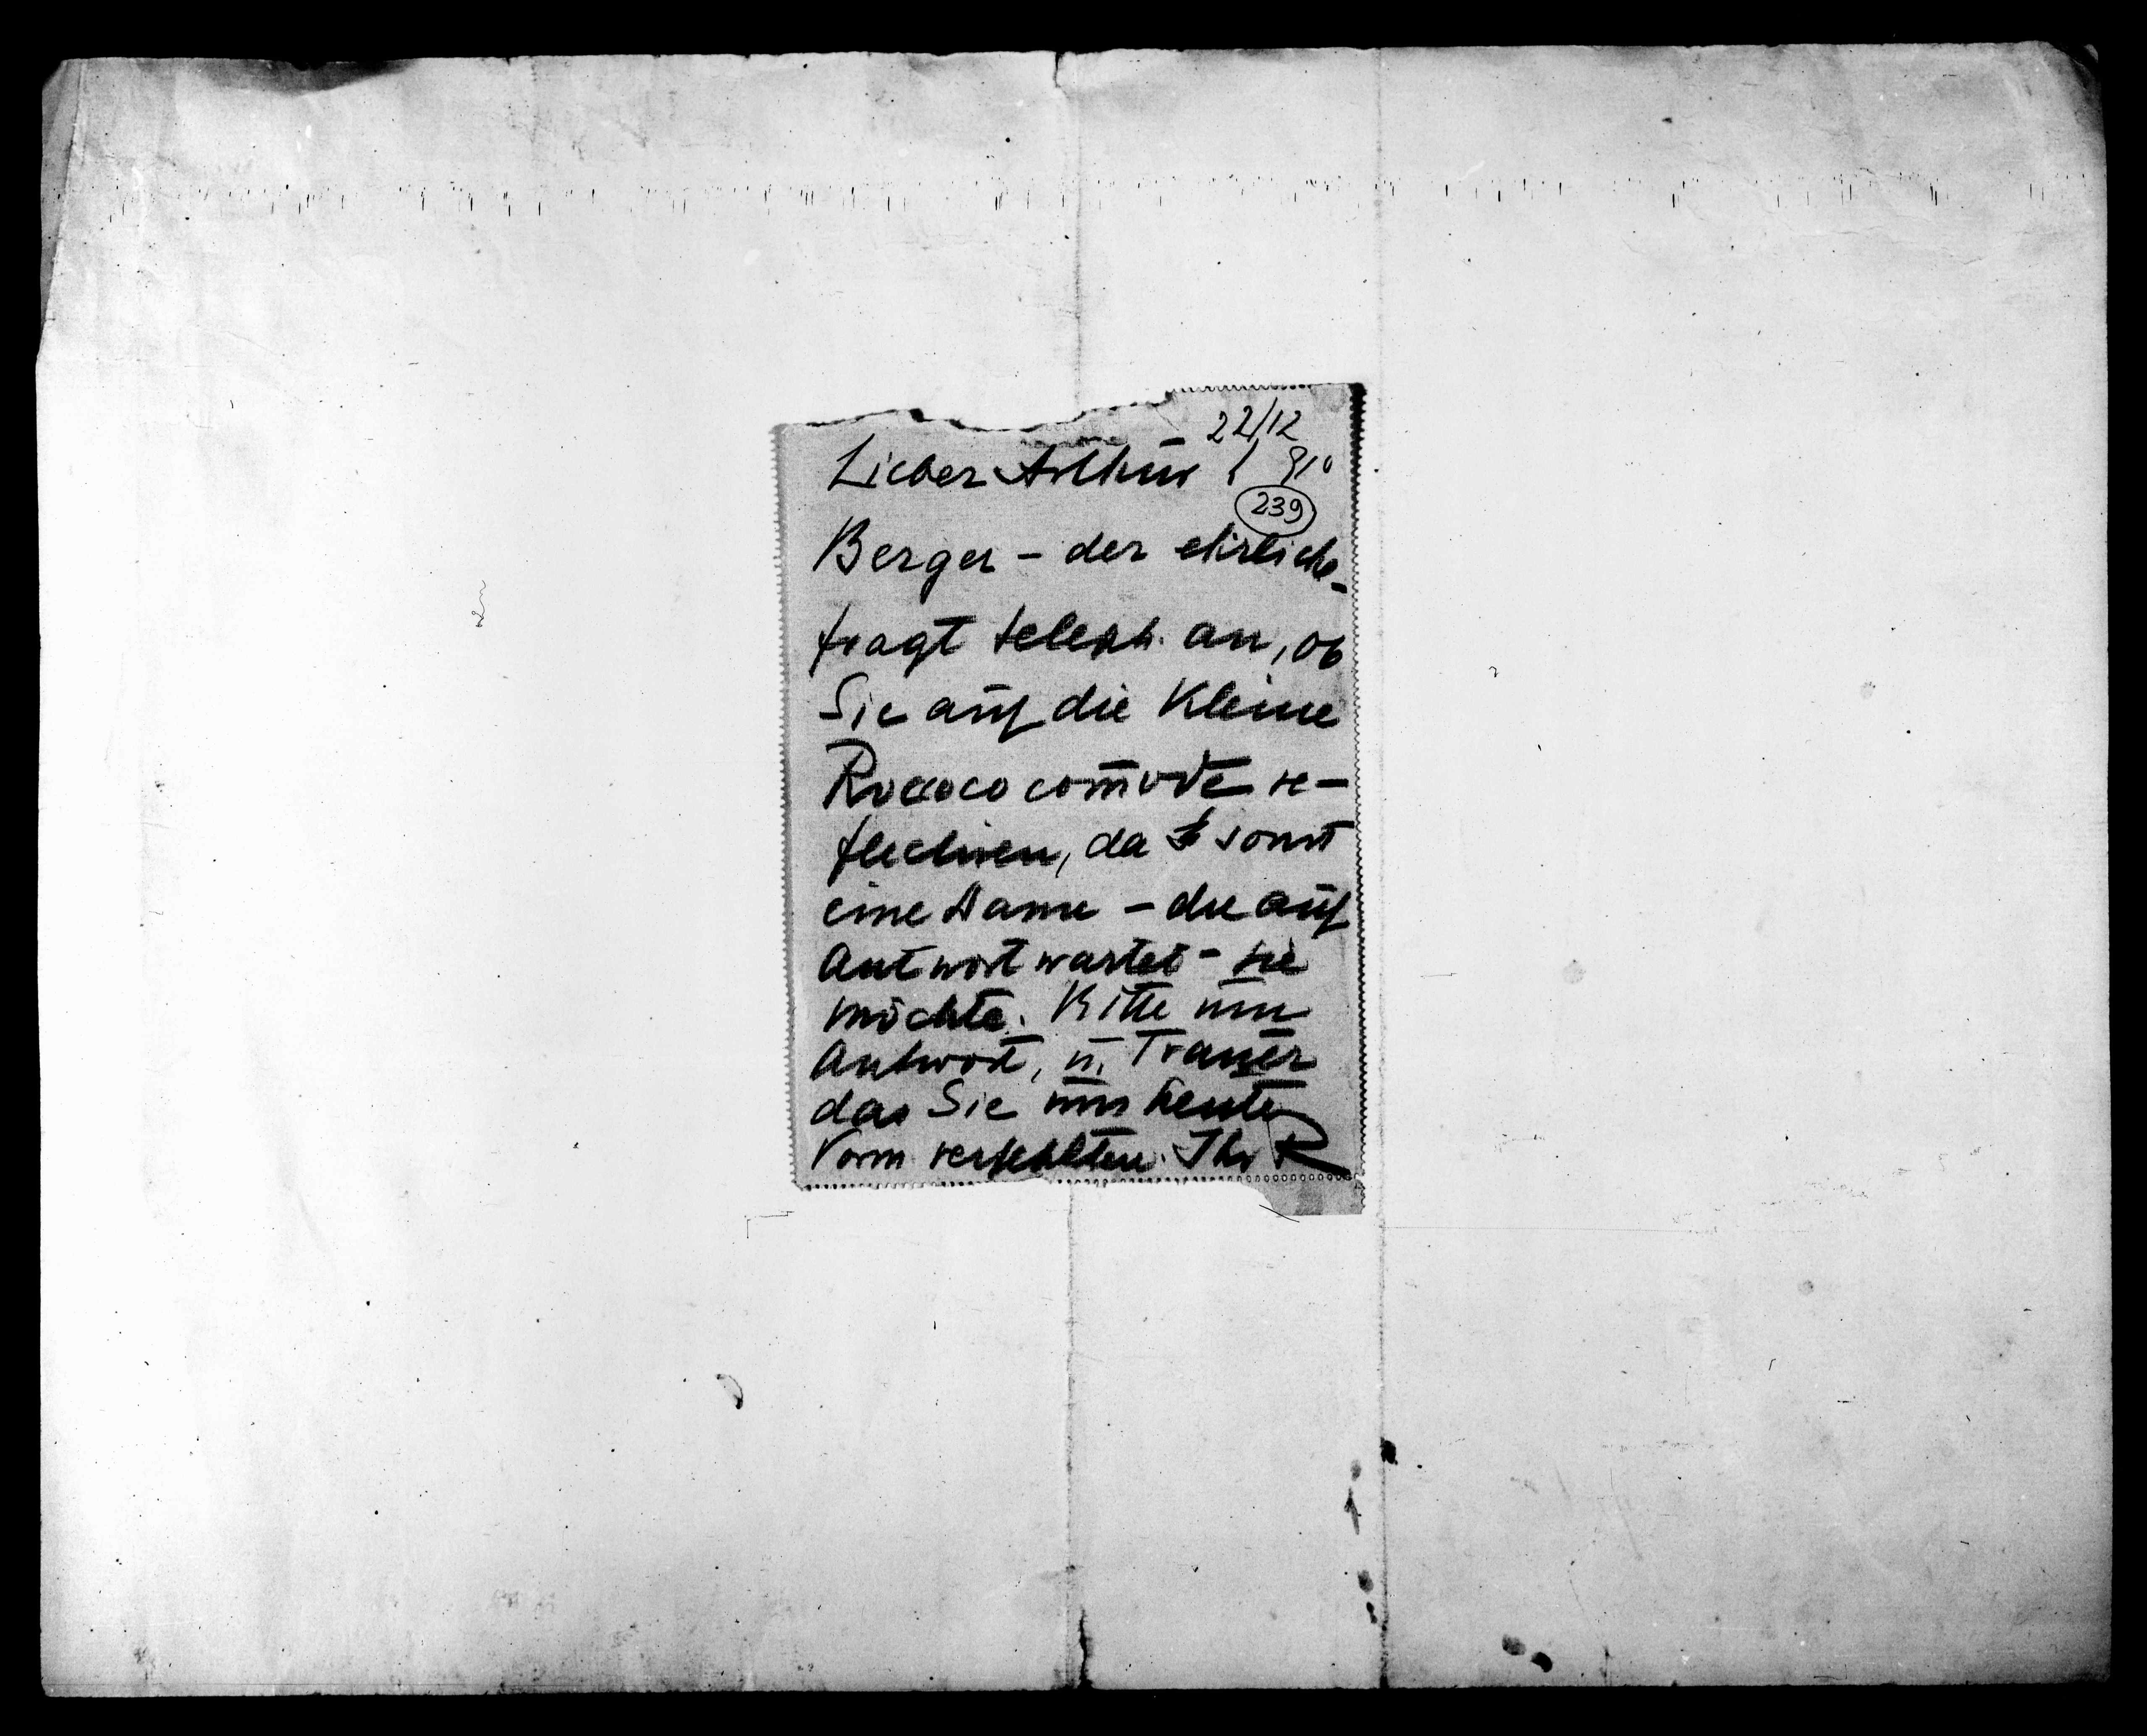 22/12
Lieber Arthur! 910
239
Berger – der ehrliche –
fragt teleph. an, ob
Sie auf die kleine
Roccoco com̄ode re–
flectiren, da sonst
eine Dame – die auf
Antwort wartet – sie
möchte. Bitte um
Antwort, u. Trauer
das Sie uns heute
Vorm verfehlten. Ihr R